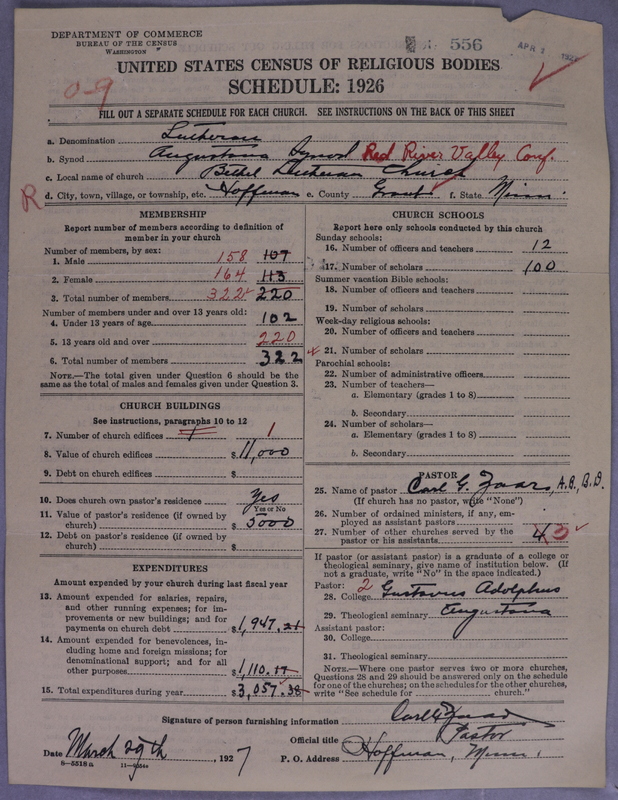 DEPARTMENT OF COMMERCE
BUREAU OF THE CENSUS
WASHINGTON
556
APR
UNITED STATES CENSUS OF RELIGIOUS BODIES
SCHEDULE: 1926
0-9
FILL OUT A SEPARATE SCHEDULE FOR EACH CHURCH. SEE INSTRUCTIONS ON THE BACK OF THIS SHEET
a. Denomination Lutheran
b. Synod Augustana Synod Red River Valley Conf.
c. Local name of church Bethel Lutheran Church
R d. City, town, village, or township, etc. Hoffman e. County Grant f. State Minn.
MEMBERSHIP
Report number of members according to definition of
member in your church
Number of members, by sex:
1. Male 158 107
2. Female 164 113
3. Total number of members 322 220
Number of members under and over 13 years old:
4. Under 13 years of age 102
5. 13 years old and over 220
6. Total number of members 322
NOTE.—The total given under Question 6 should be the
same as the total of males and females given under Question 3.
CHURCH BUILDINGS
See instructions, paragraphs 10 to 12
7. Number of church edifices 1 1
8. Value of church edifices $ 11,000
9. Debt on church edifices $
10. Does church own pastor's residence Yes
Yes or No
11. Value of pastor's residence (if owned by
church) $ 5000
12. Debt on pastor's residence (if owned by
church) $
EXPENDITURES
Amount expended by church during last fiscal year
13. Amount expended for salaries, repairs,
and other running expenses; for im-
provements or new buildings; and for
payments on church debt $ 1,947.21
14. Amount expended for benevolences, in-
cluding home and foreign missions; for
denominational support; and for all
other purposes $ 1,110.17
15. Total expenditures during year $ 3,057.38
CHURCH SCHOOLS
Report here only schools conducted by this church
Sunday schools:
16. Number of officers and teachers 12
17. Number of scholars 100
Summer vacation Bible schools:
18. Number of officers and teachers
19. Number of scholars
Week-day religious schools:
20. Number of officers and teachers
21. Number of scholars
Parochial schools:
22. Number of administrative officers
23. Number of teachers—
a. Elementary (grades 1 to 8)
b. Secondary
24. Number of scholars—
a. Elementary (grades 1 to 8)
b. Secondary
PASTOR
25. Name of pastor Carl G. Zaar, A.B., B.D.
(If church has no pastor, write "None")
26. Number of ordained ministers, if any, em-
ployed as assistant pastors
27. Number of other churches served by the
pastor or his assistants 4 3
If pastor (or assistant pastor) is a graduate of a college or
theological seminary, give name of institution below. (If
not a graduate, write "No" in the space indicated.)
Pastor: 2
28. College Gustavus Adolphus
29. Theological seminary Augustana
Assistant pastor:
30. College
31. Theological seminary
NOTE.—Where one pastor serves two or more churches,
Questions 28 and 29 should be answered only on the schedule
for one of the churches; on the schedules for the other churches,
write "See schedule for church."
Signature of person furnishing information Carl G Zaar
Official title Pastor
Date March 29th, 1927 P. O. Address Hoffman, Minn.
8-5518a